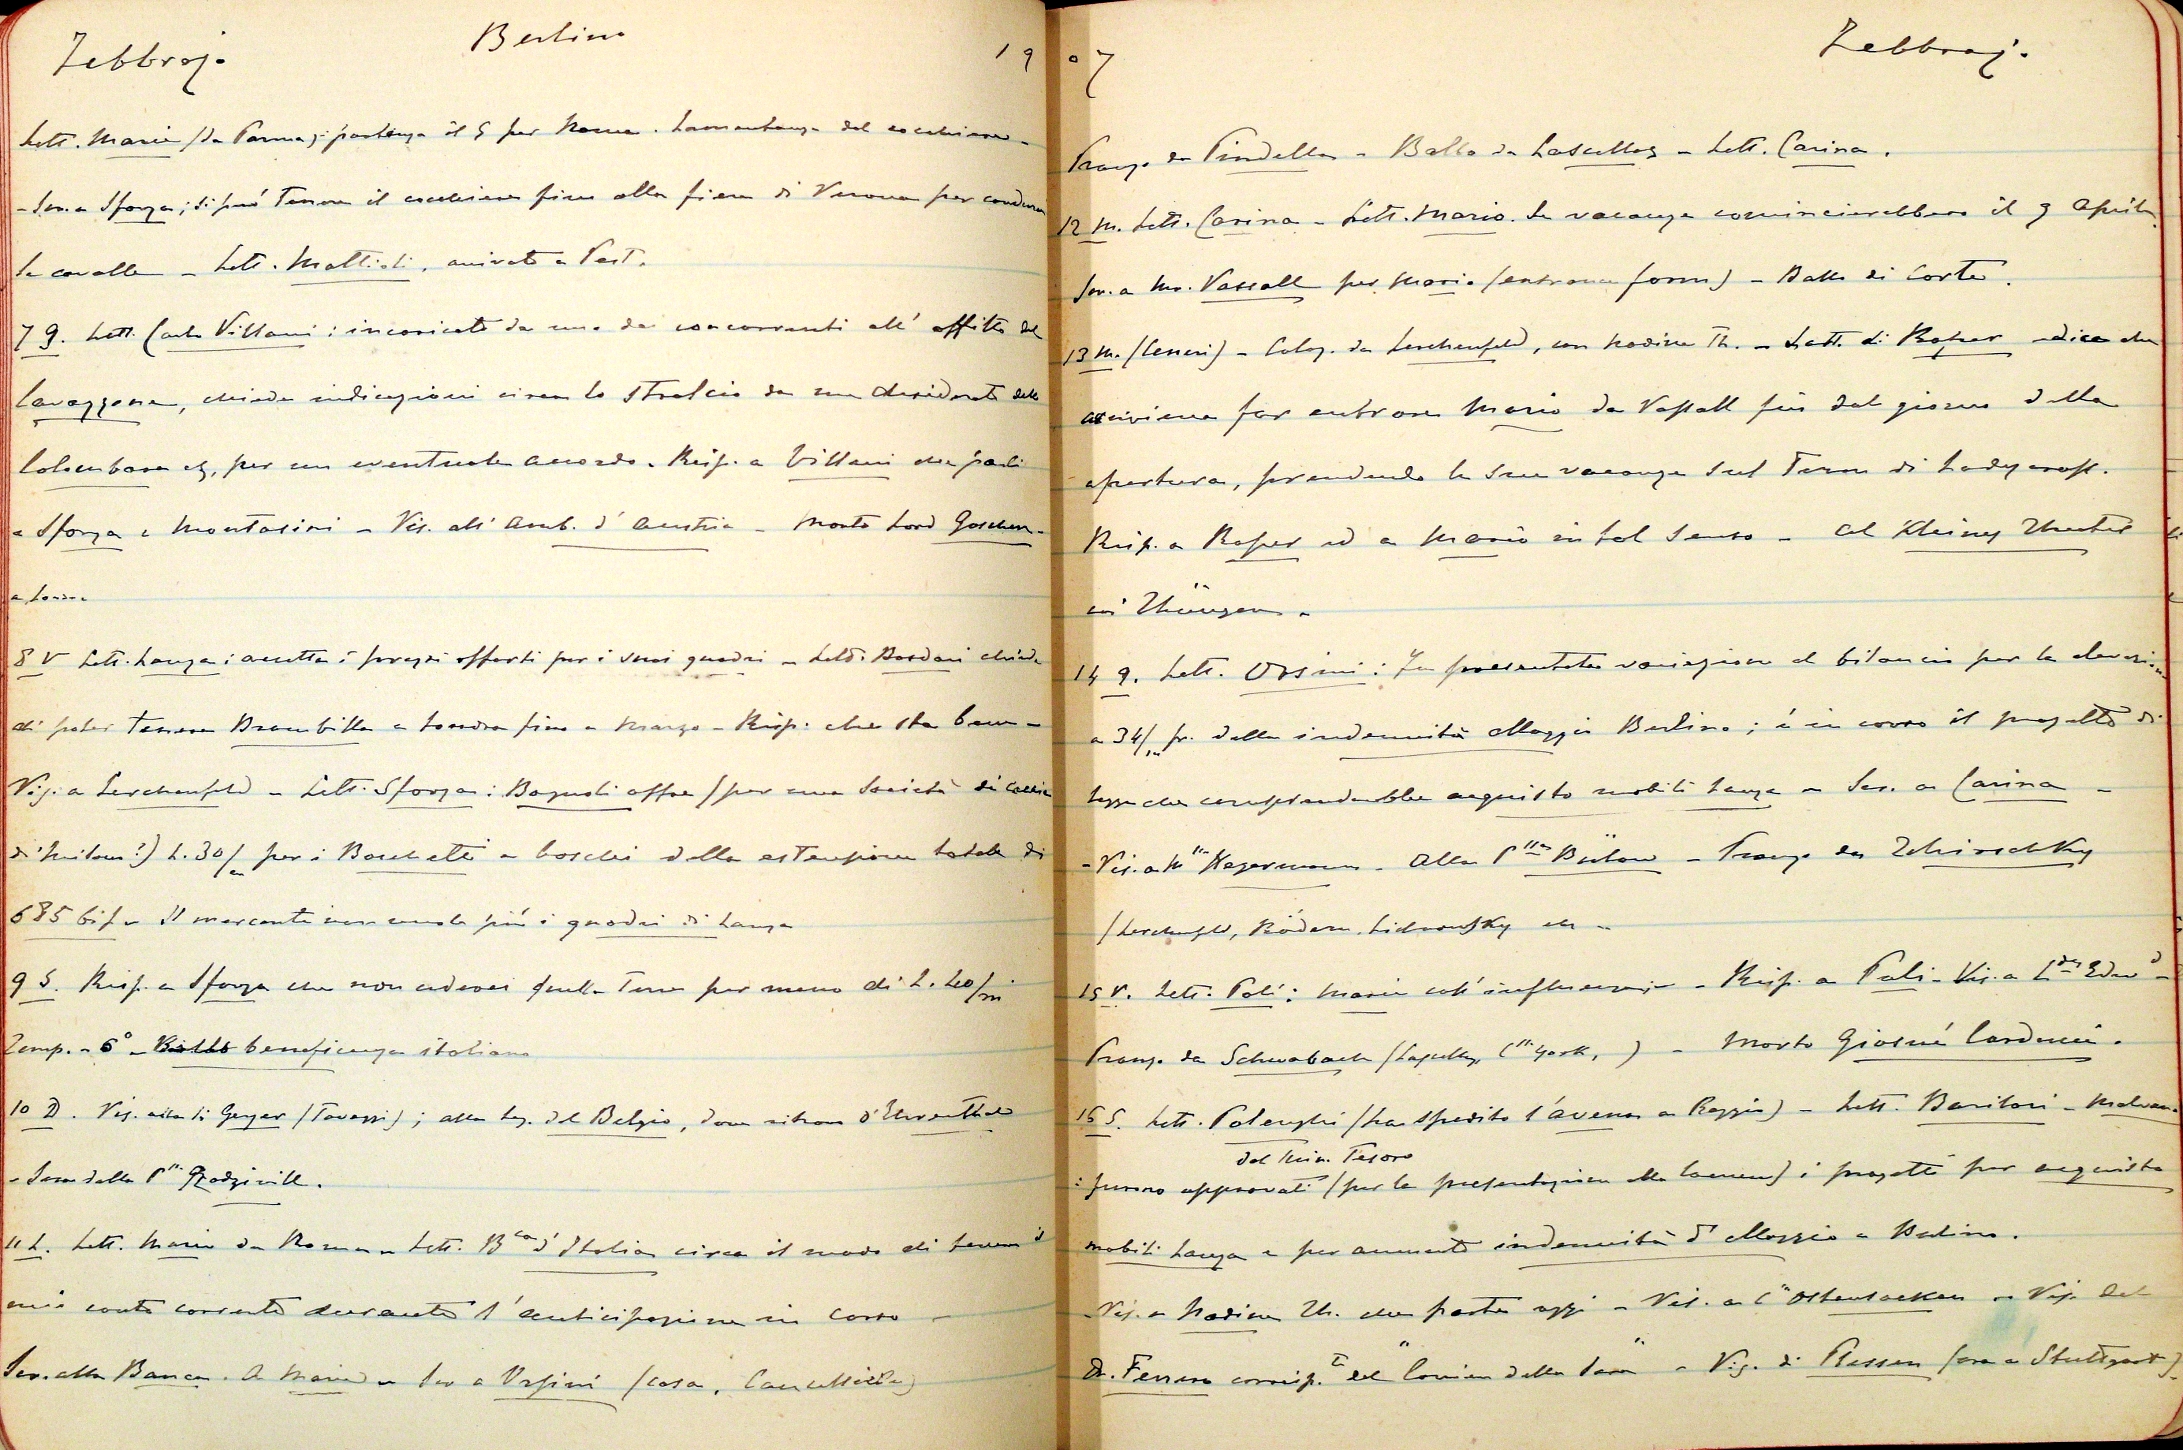 Febbrajo Berlino 19
Lett. Mario (da Parma); partenza il 5 per Roma. Lamentanze del cocchiere -
- Scr. a Sforza; si può tenere il cocchiere fino alla fiera di Verona per condurre
le cavalle - Lett. Mattioli, arrivato a Pest.
7 G. Lett. Carlo Villani: incaricato da uno dei concorrenti all' affitto del
Cavazzone, chiede indicazioni circa lo stralcio da me desiderato della
Colombara etc, per un eventuale accordo. Risp. a Villani che parli
a Sforza e Montasini - Vis. all' Amb. d' Austria - Morto Lord Goschen -
a Londra
8 V Lett. Lanza: accetta i prezzi offerti per i suoi quadri - Lett. Bordari chiede
di poter tenere Brambilla a Londra fino a Marzo - Risp. che sta bene -
Vis. a Lerchenfeld - Lett. Sforza: Bagnoli offre (per una Società di Caccia
di Milano?) L. 30/m per i Boschetti e boschi della estensione totale di
685 bif. - Il mercante non vuole più i quadri di Lanza
9 S. Risp. a Sforza che non cederei quelle terre per meno di L. 40/m
Temp. - 6° - beneficenza italiana
10 D. Vis. alla di Geyer (Tavazzi); alla Leg. del Belgio, dove ritrovo d'Ehrenthal
- Sera dalla P.ssa Radziwill.
11 L. Lett. Mario da Roma - Lett. B.ca d' Italia circa il modo di tenere il
mio conto corrente durante l'anticipazione in corso -
Scr. alla Banca. A Mario - Scr a Orsini (casa, Cancelliere)
07 Febbrajo
Pranzo da Pindella - Ballo da Lascelles - Lett. Carina.
12 M. Lett. Carina - Lett. Mario. Le vacanze comincierebbero il 9 Aprile.
Scr. a Mr. Vassall per Mario (entrance form) - Ballo di Corte.
13 M. (Ceneri) - Colaz. da Lerchenfeld, con Nadine Th. - Lett. di Roper - dice che
conviene far entrare Mario da Vassall fin dal giorno della
apertura, prendendo le sue vacanze sul Term di Ladycross.
Risp. a Roper ed a Mario in tal senso - Al Kleines Theater
coi Thüngen -
14 G. Lett. Orsini: Fu presentata variazione al bilancio per la elevazione
a 34/m fr. della indennità alloggio Berlino; è in corso il progetto di
legge che comprenderebbe acquisto mobili Lanza - Scr. a Carina -
- Vis. a M.me Hegermann - Alla P.ssa Bülow - Pranzo da Tchirschky
(Lerchenfeld, Rödern, Lichnowsky etc -
15 V. Lett. Poli: Mario coll' influenza; - Risp. a Poli - Vis. a L.dy Edw.d -
Pranzo da Schwabach (Lascelles, C.ssa York, ) - Morto Giosuè Carducci.
16 S. Lett. Polenghi (ha spedito l'avena a Reggio) - Lett. Barilari - Malvano
: furono approvati dal Min. Tesoro (per la presentazione alla Camera) i progetti per acquisto
mobili Lanza e per aumento indennità d' alloggio a Berlino.
- Vis. a Nadine Th. che parte oggi - Vis. a C.ssa Ostensacken - Vis. del
Dr. Ferrero corrisp.te del "Corriere della Sera" - Vis. di Ressen (ora a Stuttgart) -